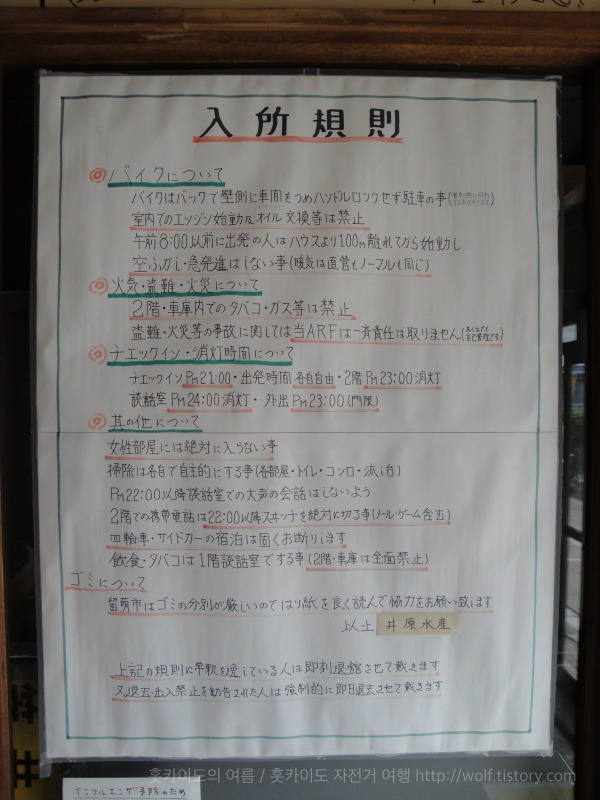 入所規則
◎バイクについて
バイクはバックで壁側に車間をつめハンドルロックせず駐車の事
室内でのエンジン始動及オイル交換等は禁止
午前8:00以前に出発の人はハウスより100m離れてから始動し
空ぶかし・急発進はしない事(暖気は直管もノーマルも同じ)
◎火気・盗難・火災について
2階・車庫内でのタバコ・ガス等は禁止
盗難・火災等の事故に関しては当ARFは一斉責任は取りません(あくまで自己管理です)
◎チェックイン・消灯時間について
チェックインPM21:00・出発時間各自自由・2階PM23:00消灯
談話室PM24:00消灯・外出PM23:00(門限)
◎其の他について
女性部屋には絶対に入らない事
掃除は各自で自主的にする事(各部屋・トイレ・コンロ・流し台)
PM22:00以降談話室での大声の会話はしないよう
2階での携帯電話は22:00以降スイッチを絶対に切る事(メール・ゲーム含む)
四輪車・サイドカーの宿泊は固くお断りします
飲食・タバコは1階談話室でする事(2階・車庫は全面禁止)
ゴミについて
留萌市はゴミの分別が厳しいのではり紙を良く読んで協力をお願い致します
以上 井原水産
上記の規則に常軌を逸している人は即刻退館させて戴きます
又退去・出入禁止を勧告された人は強制的に即日退去させて戴きます
インフルエンザ予防のため
홋카이도의 여름 / 홋카이도 자전거 여행 http://wolf.tistory.com